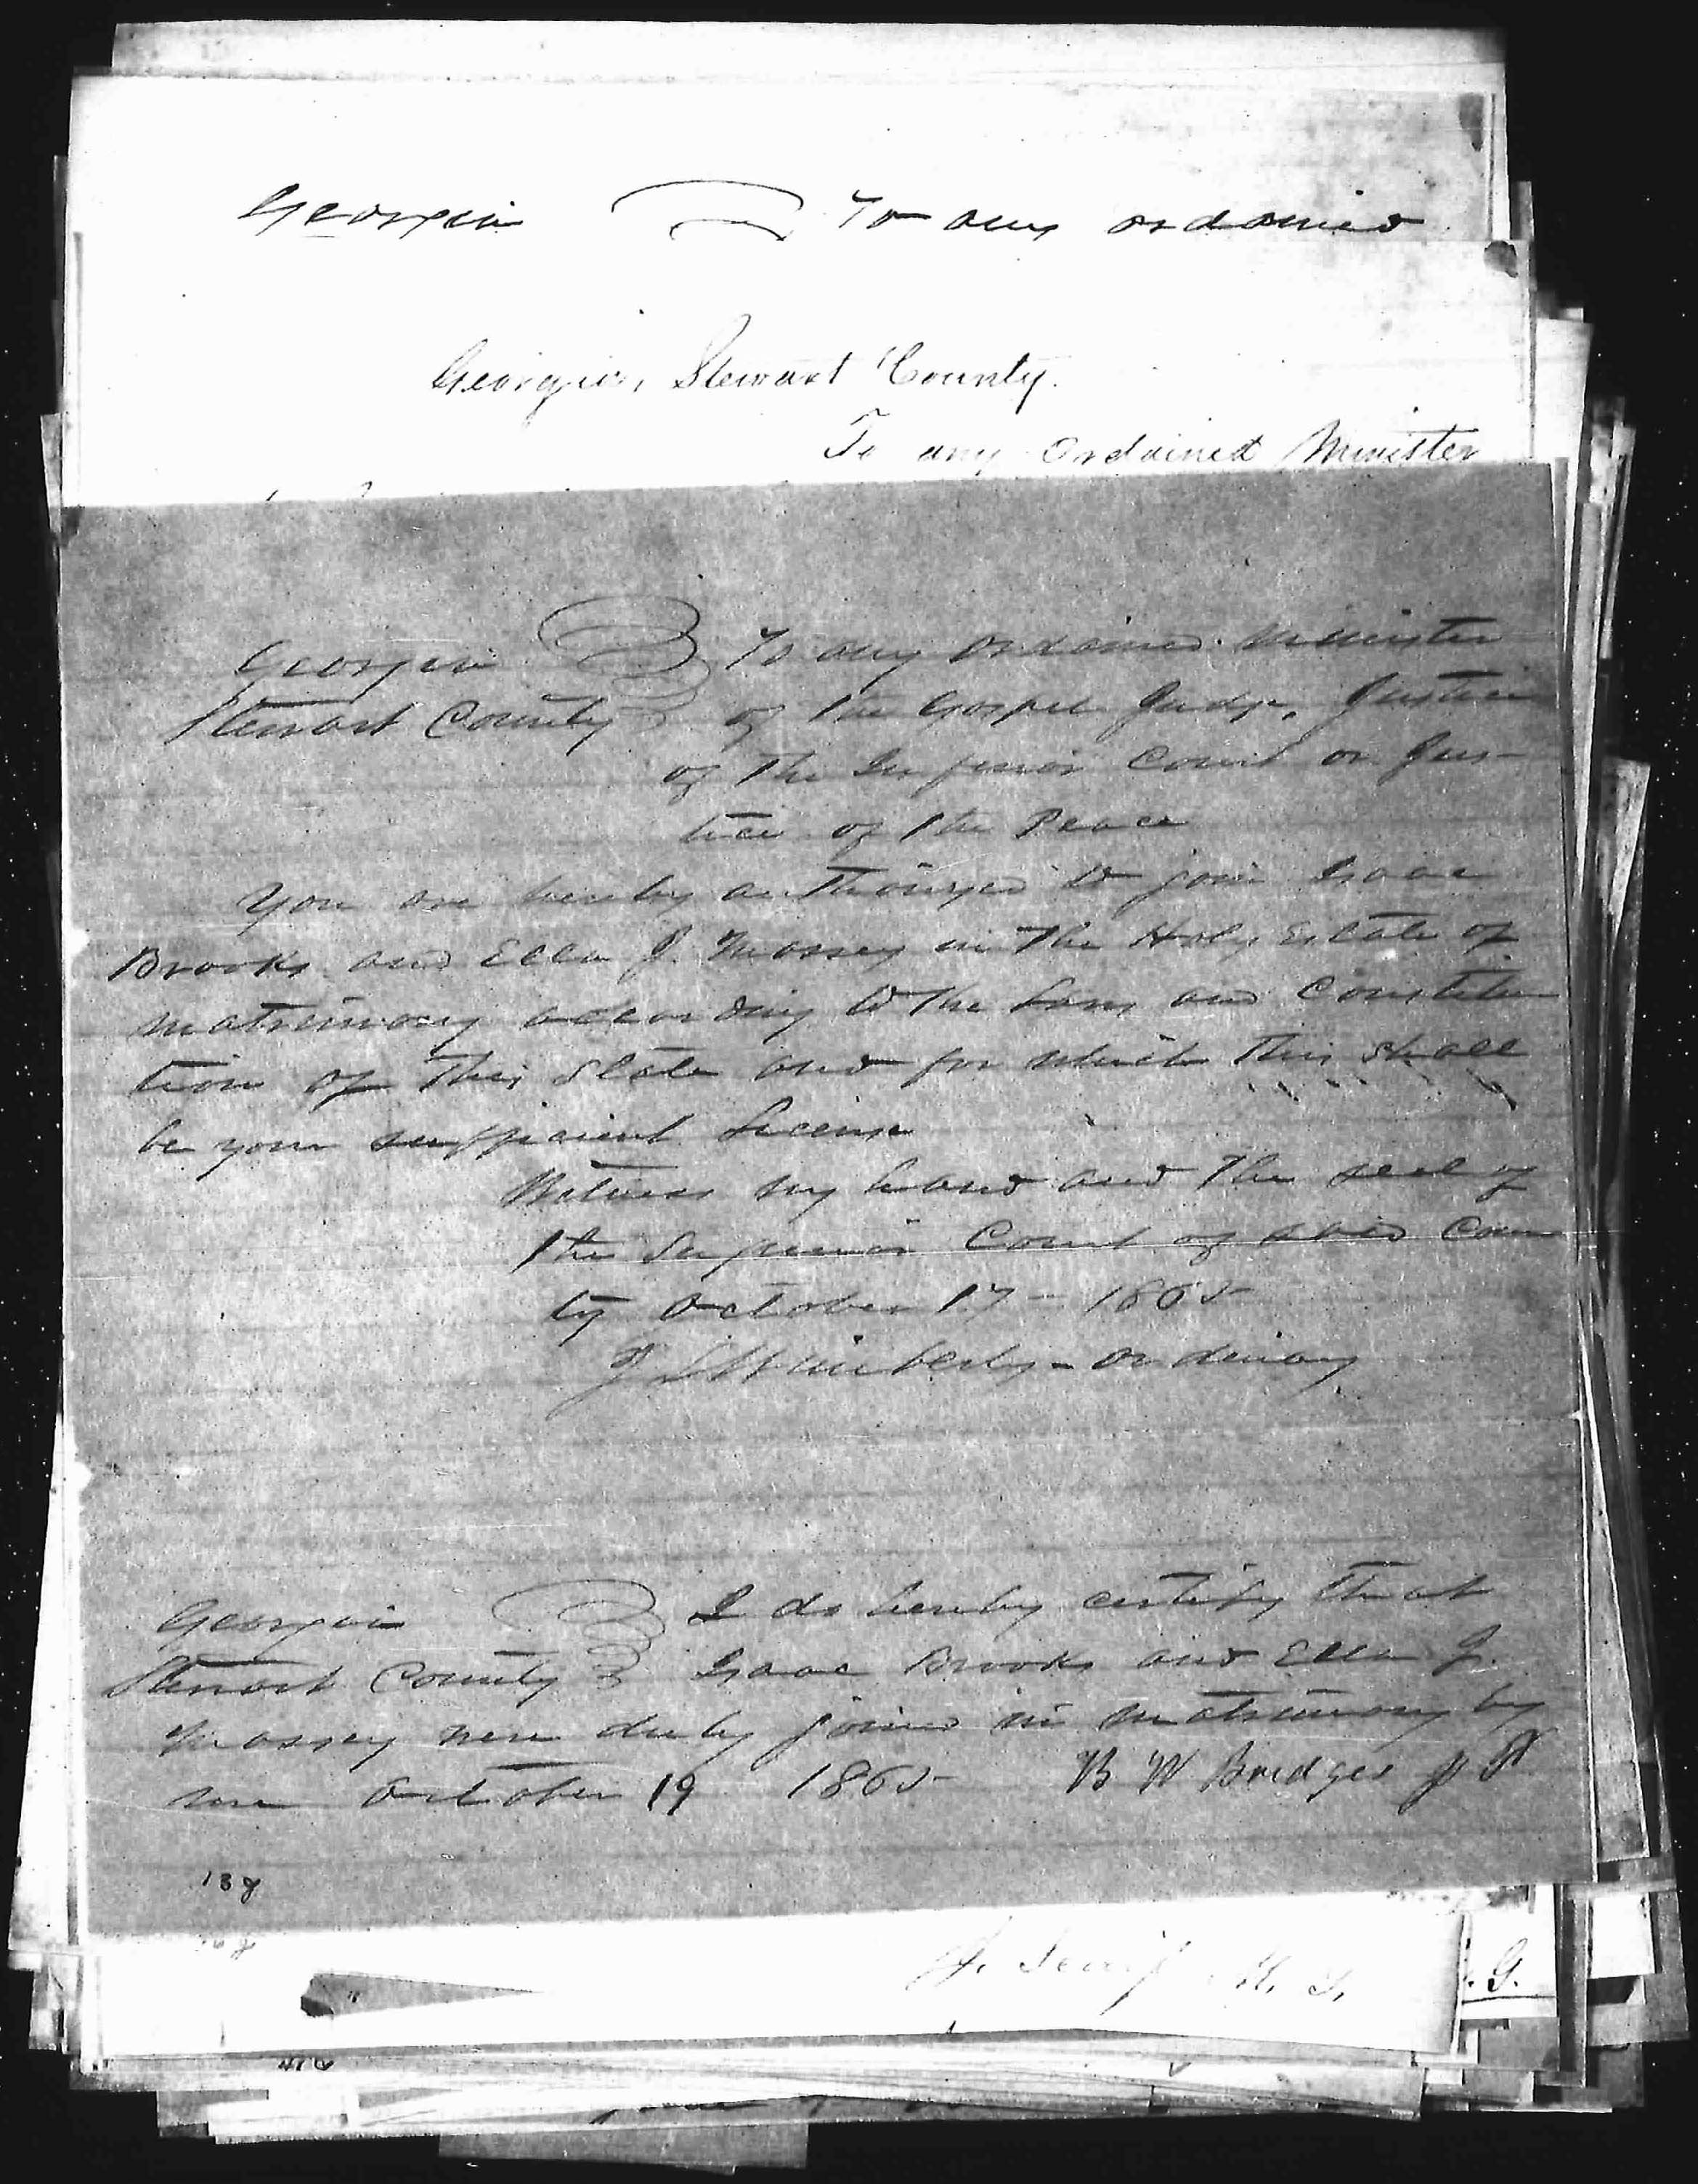 Georgia To any ordained
Georgia, Stewart County.
To any Ordained Minister
Georgia To any ordained minister
Stewart County of the Gospel Judge, Justice
of the Inferior Court or Jus-
tice of the Peace
You are hereby authorized to join Isaac
Brooks and Ella J. Massey in the Holy Estate of
matrimony according to the Laws and Constitu
tion of this State and for which this shall
be your sufficient License
Witness my hand and the seal of
the Superior Court of said Coun
ty October 17 - 1865
J L Wimberly - Ordinary
Georgia I do hereby certify that
Stewart County Isaac Brooks and Ella J.
Massey were duly joined in matrimony by
me October 19 1865 B W Bridges J P
138